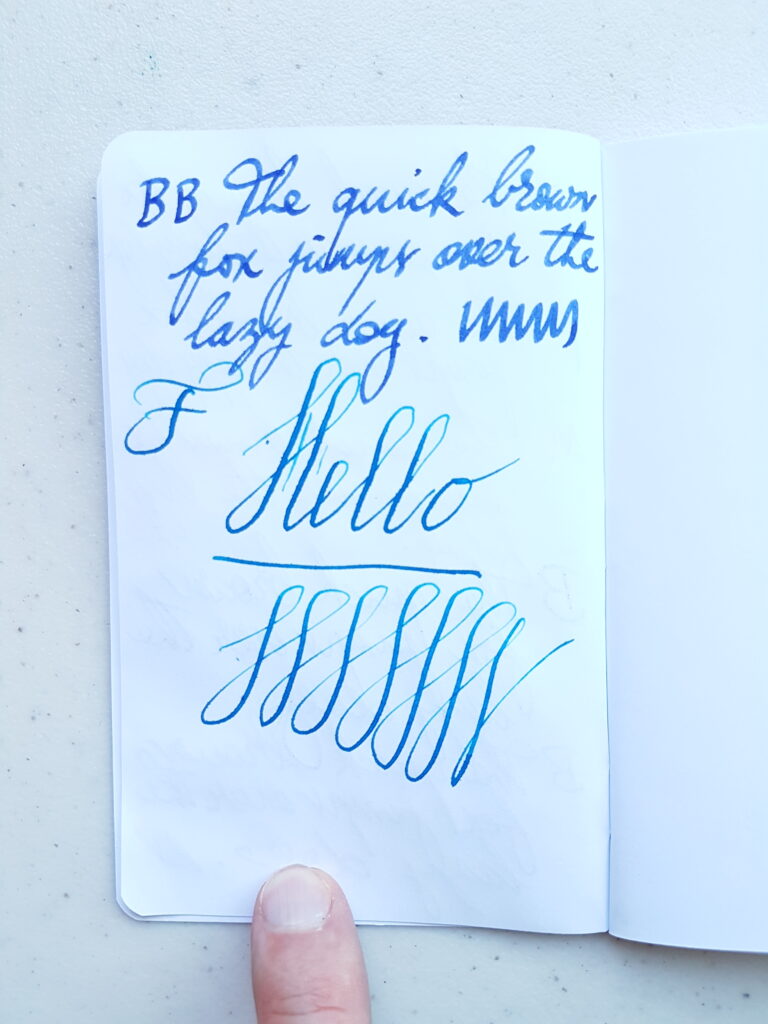 BB The quick brown
fox jumps over the
lazy dog.
F
Hello